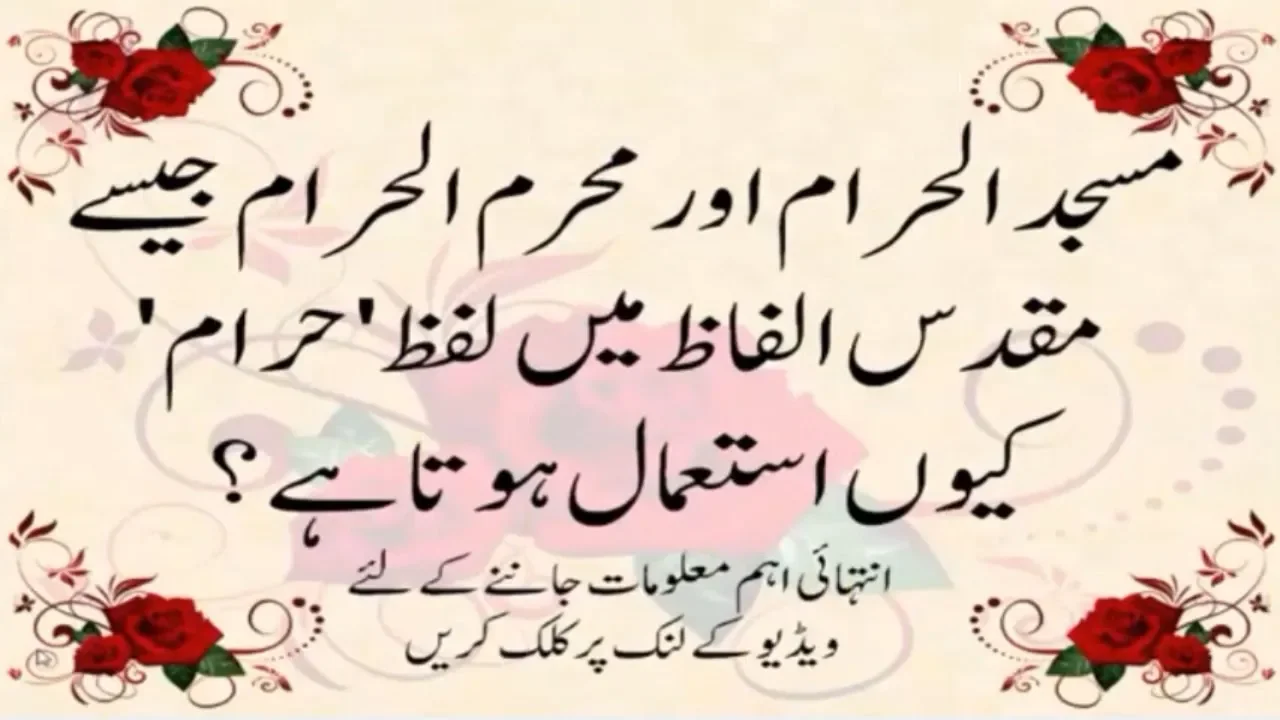 مسجد الحرام اور محرم الحرام جیسے
مقدس الفاظ میں لفظ 'حرام'
کیوں استعمال ہوتا ہے؟
انتہائی اہم معلومات جاننے کے لئے
ویڈیو کے لنک پر کلک کریں